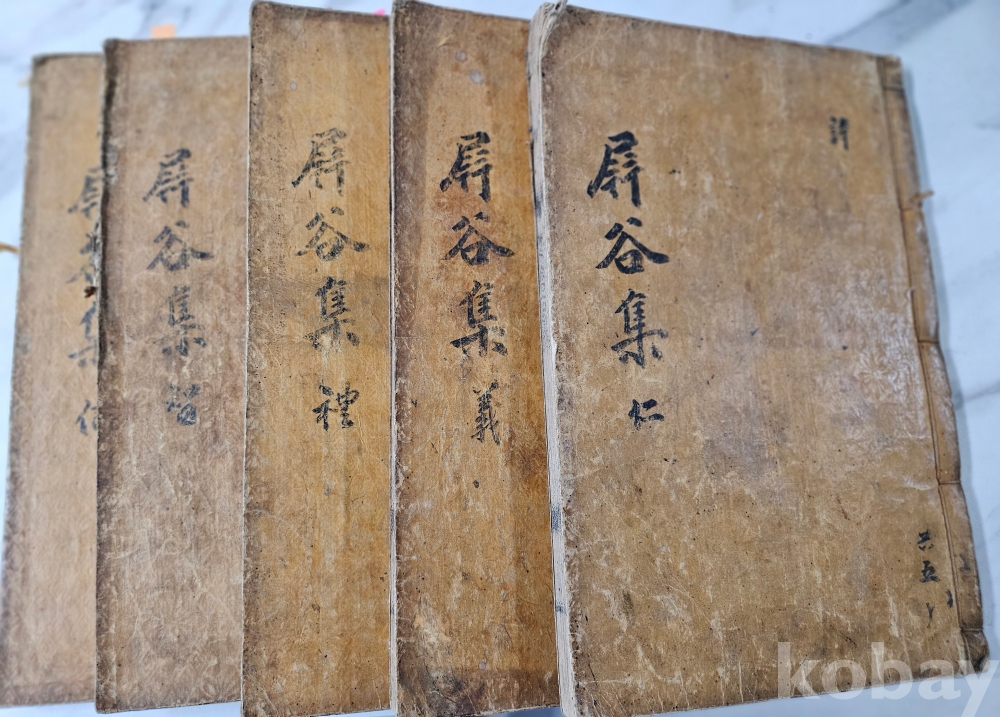 屛谷集 仁
共五
屛谷集 義
屛谷集 禮
屛谷集 智
屛谷集 信
kobay